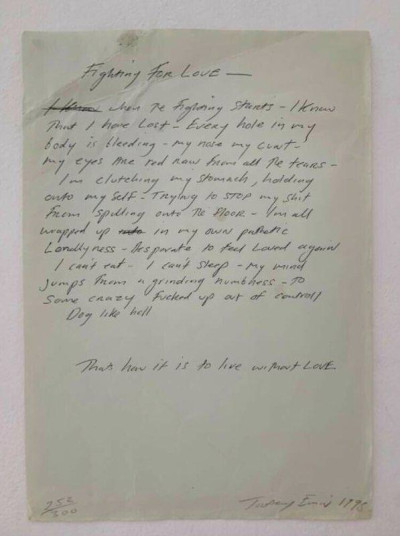 Fighting For Love —
when The fighting starts - I Know
That I have Lost - Every hole in my
body is bleeding - my nose my Cunt -
my eyes Are red raw from all The tears -
I'm clutching my stomach, holding
onto my self - Trying to STOP my shit
from spilling onto The Floor - I'm all
wrapped up in my own pathetic
Lonallyness - Desperate to feel Loved again
I can't eat - I can't Sleep - my mind
jumps from a grinding numbness - TO
Some crazy Fucked up out of controll
Dog like hell
Thats how it is to live without LOVE
252/300
Tracey Emin 1998